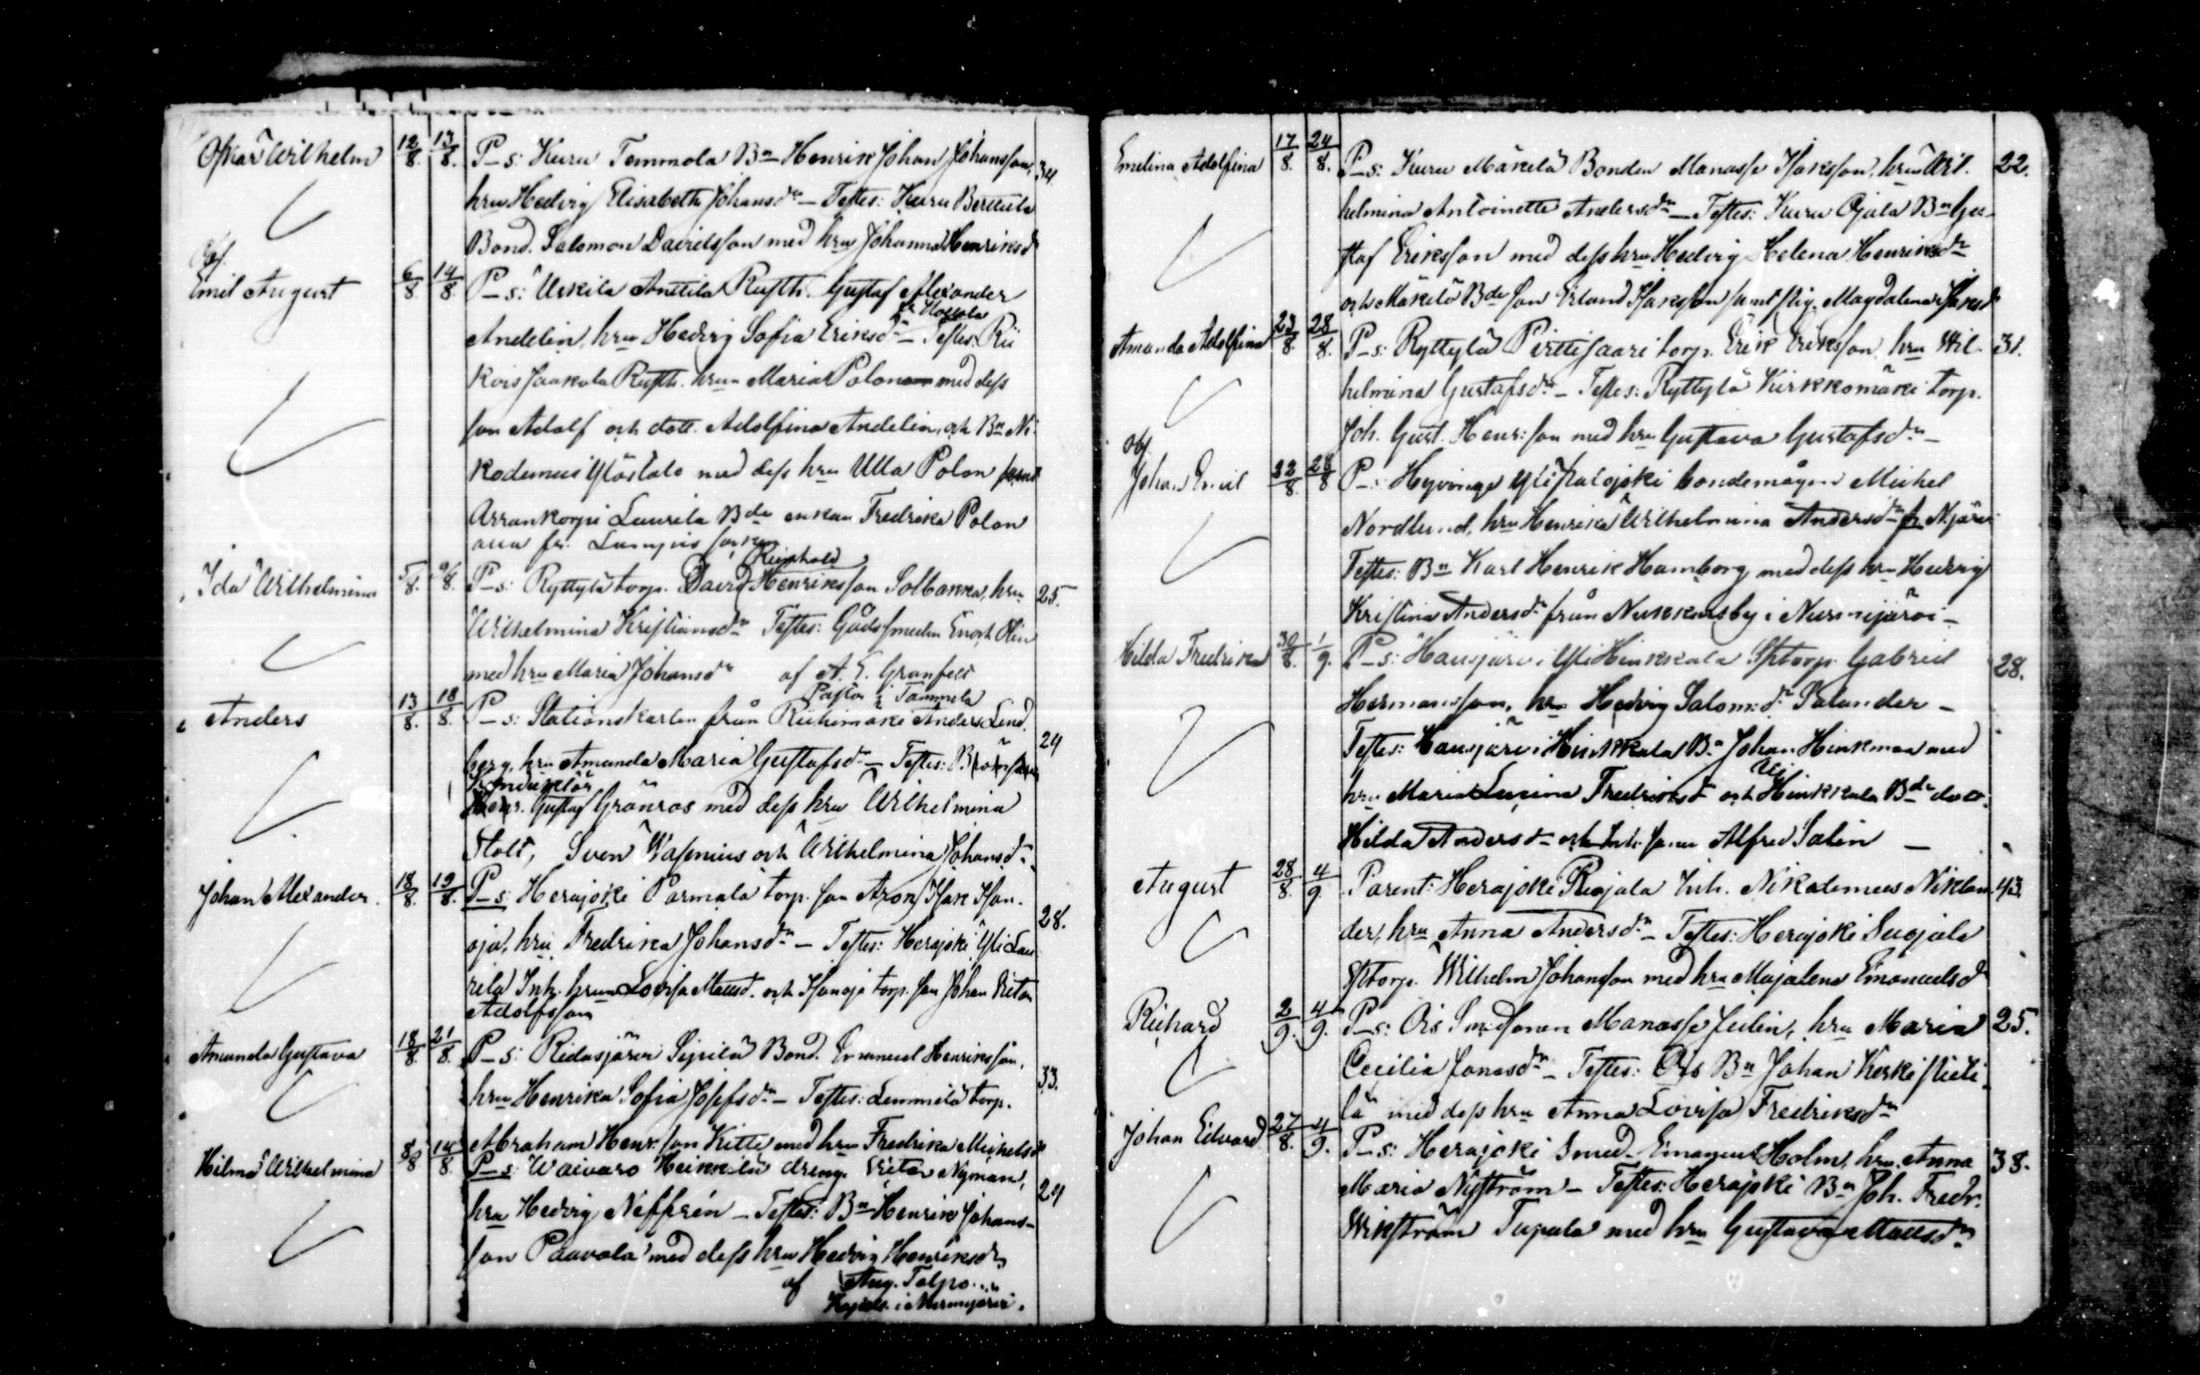 Oskar Wilhelm 12/8 13/8. P_s: Kuru Temmola Bn Henrik Johan Johansson, 34.
hru Hedvig Elisabeth Johansdr – Testes: Kuru
Bond. Salomon Davidsson med hru Johanna Henriksdr
Obs.
Emil August 6/8 14/8 P_s: Uskila Anttila Rusth. Gustaf Alexander
Andelin, hru Hedvig Sofia Eriksdr – Testes:
Jaakola Rusth. hrun Maria Polon med dess
son Adolf och dott. Adolfina Andelin, och Bn Ni-
kodemus med dess hru Ulla Polon samt
Laurila Bde enkan Fredrika Polon
fr.
Ida Wilhelmina 5/8. P_s: Ryttylä torp. David Reinhold Henriksson hru 25.
Wilhelmina Kristiansdr Testes: Gårdssmeden Enoch Olin
med hru Maria Johansdr af A. E. Granfelt
Pastor i Tammela
Anders 13/8. 18/8. P_s: Stationskarlen från Riihimäki Anders Lind- 24
berg, hru Amanda Maria Gustafsdr – Testes:
Konduktör
Gustaf Grönroos med dess hru Wilhelmina
Stolt, Sven Wasenius och Wilhelmina Johansdr
Johan Alexander. 18/8. 19/8. P_s: Herajoki Parmala torp. son Aron Isak Isan- 28.
oja, hru Fredrika Johansdr – Testes: Herajoki Yli Lau-
rila Inh. hrun Lovisa Mattsd. och Isanoja torp. son Johan Viktor
Adolfsson
Amanda Gustava 18/8 21/8. P_s: Ridasjärvi Sipilä Bond. Emanuel Henriksson, 33.
hru Henrika Sofia Josefsdr – Testes: Lemmilä torp.
Abraham Henr.son Kitti med hru Fredrika Michelsdr
Hilma Wilhelmina 8/8 14/8. P_s: Waivaro Heikkilä dreng. Viktor Nyman, 24
hru Hedvig Neffrén – Testes: Bn Henrik Johans-
son Paavola med dess hru Hedvig Henriksdr
af Aug. Talpo
Kapell. i Nurmijärvi.
Emelina Adolfina 17/8. 24/8. P_s: Kuru Mäkelä Bonden Manasse Isaksson, hru Wil- 22.
helmina Antoinette Andersdr – Testes: Kuru Ojala Bn Gu-
staf Eriksson med dess hru Hedvig Helena Henriksdr
och Mäkelä Bde son Erland Isaksson samt pig. Magdalena Isaksdr
Amanda Adolfina 23/8. 28/8. P_s: Ryttylä Pirttisaari torp. Erik Eriksson hru Wil- 31.
helmina Gustafsdr – Testes: Ryttylä Kirkkomäki torp.
Joh. Gust. Henr:son med hru Gustava Gustafsdr –
Obs.
Johan Emil 22/8. 28/8 P_s: Hyvinge bondemågen Michel
Nordlund, hru Henrika Wilhelmina Andersdr
Testes: Bn Karl Henrik Hamborg med dess hru Hedvig
Kristina Andersdr från Nukkarsby i Nurmijärvi –
Hilda Fredrika 30/8. 1/9. P_s: Hausjärvi Yli Hinkkala Sptorp. Gabriel 28.
Hermansson, hru Hedvig Salom:dr Salander –
Testes: Hausjärvi Hinkkala Bn Johan Hinkman med
hru Maria Lucina Fredriksdr och Yli Hinkkala Bde dott.
Hilda Andersdr och Inh. sonen Alfred Salin –
August 28/8. 4/9. Parent: Herajoki Inh. Nikodemus Niklan- 43.
der, hru Anna Andersdr – Testes: Herajoki Suojala
Sptorp. Wilhelm Johansson med hru Majalena Emanuelsdr
Richard 2/9. 4/9. P_s: Ois Smedsonen Manasse Julin, hru Maria 25.
Cecilia Jonasdr – Testes: Ois Bn Johan
lä med dess hru Anna Lovisa Fredriksdr
Johan Edvard 27/8. 4/9. P_s: Herajoki Smed Emanuel Holm, hru Anna 38.
Maria Nyström – Testes: Herajoki Bn Joh. Fredr.
Wikström Tupala med hru Gustava Mattsdr